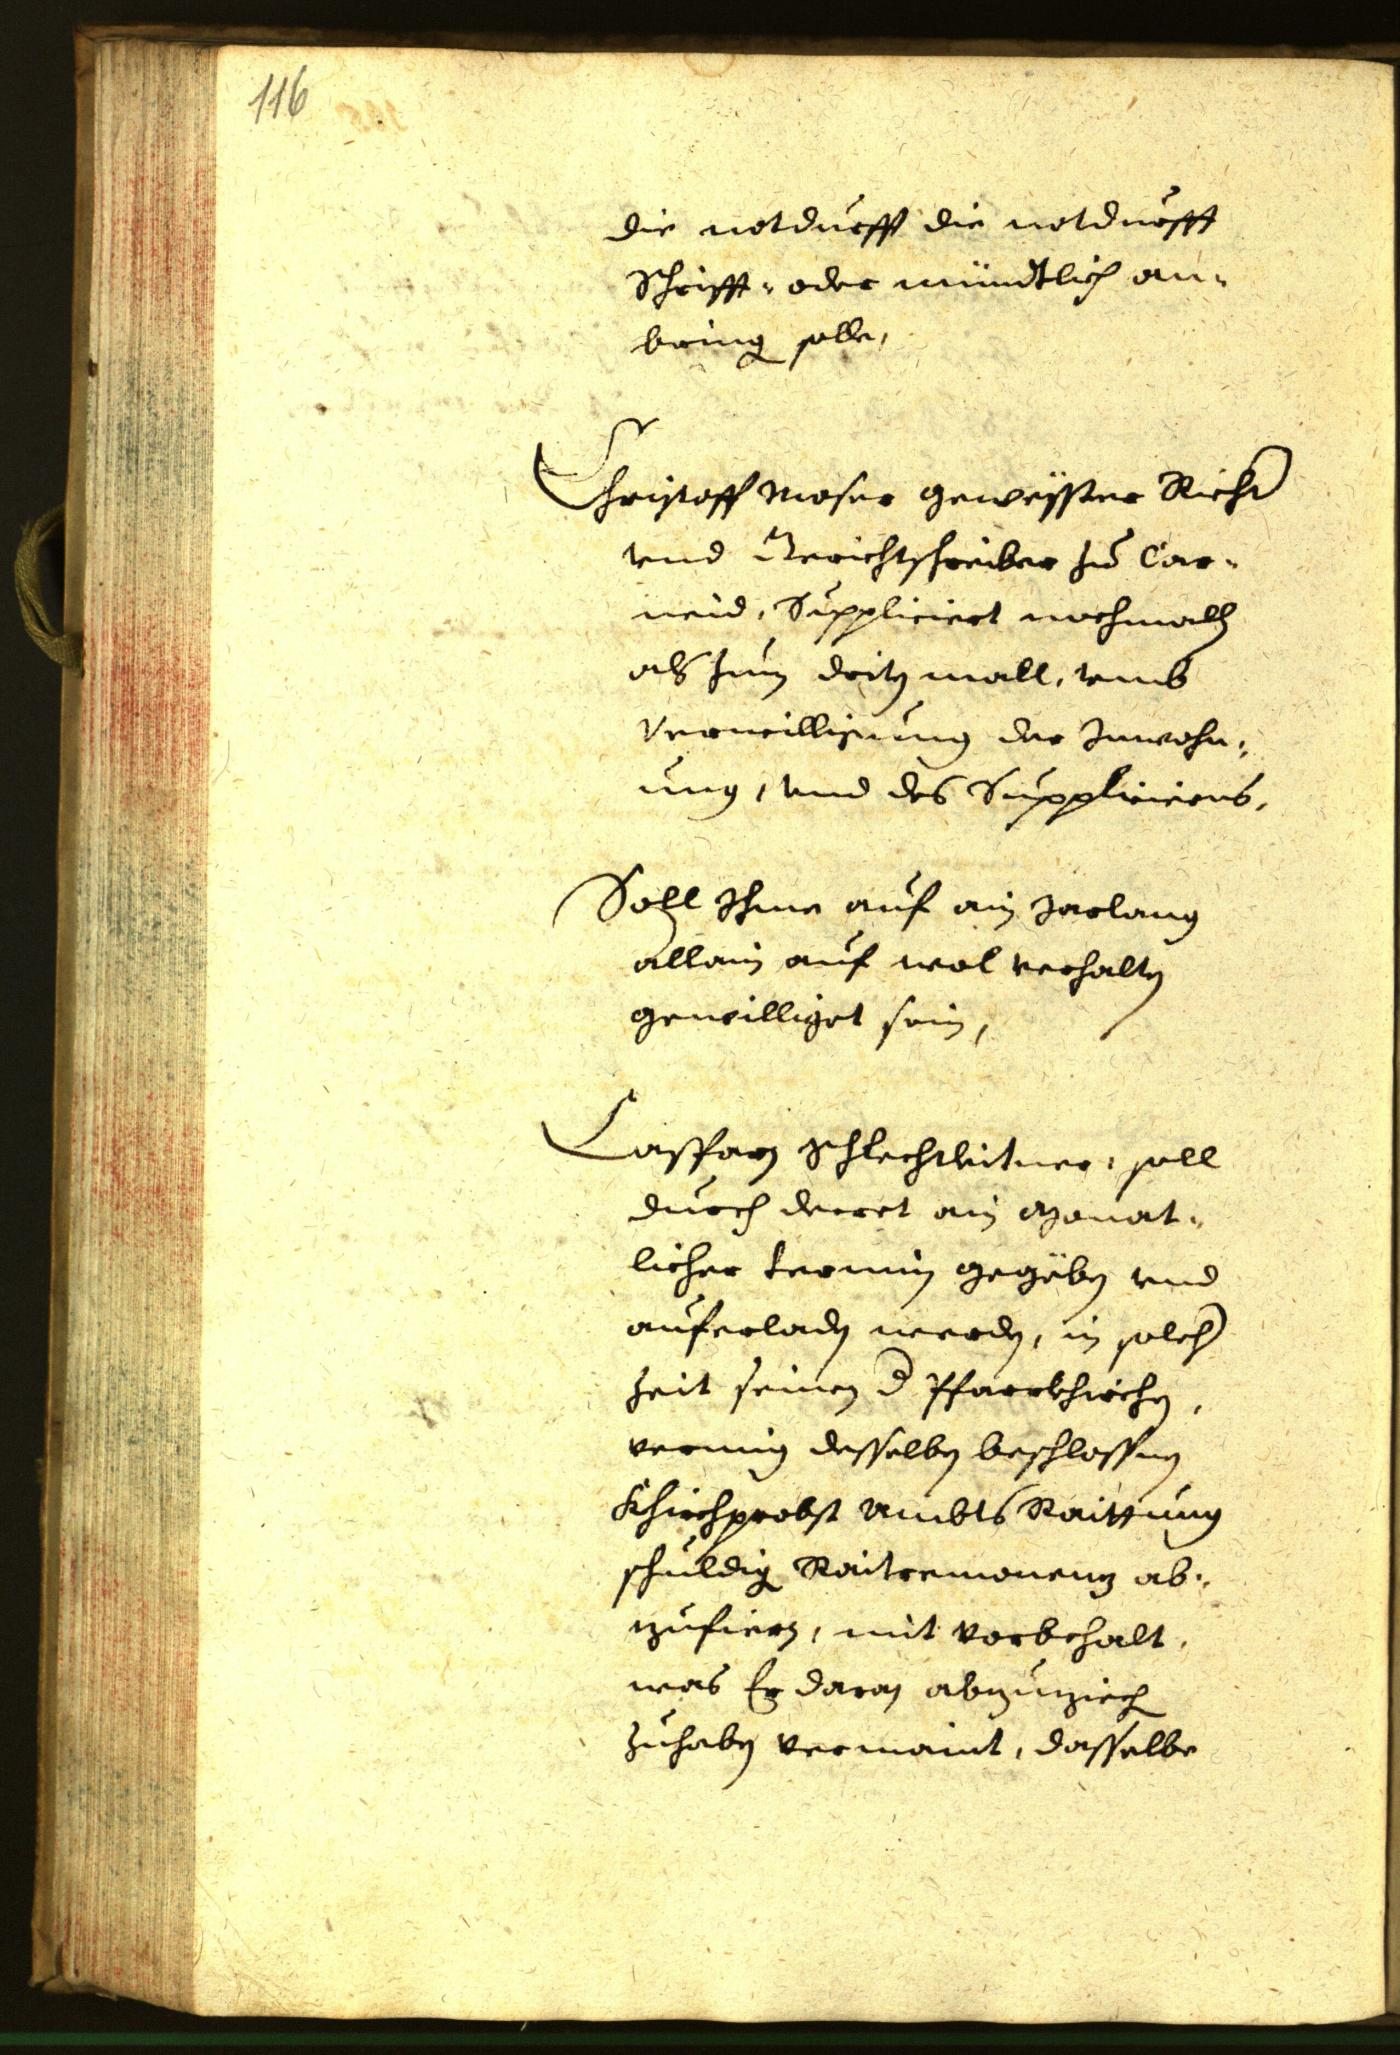 116
die notdurfft die notdurfft
Schrifft- oder mündtlich an-
bring solle,
Christoff Moser gewesster Richter
vnd Gerichtschreiber zu Car-
neid, Suppliciert nochmallß
als zum dritn mall, vmb
Verwilligung der Inwohn-
ung, vnd des Supplicierns,
Soll Ihme auf ain Jarlang
allain auf wol verhaltn
gewilliget sein,
Casparn Schlechtleitner, soll
durch decret ain Monat-
licher termin gegäbn vnd
auferladn werdn, in solcher
Zeit seinen der Pfarrkhirchn,
vermüg desselbn beschlossnen
Khirchprobst Ambts Raittung
schuldig Raitremanenz ab-
zufiern, mit vorbehalt,
was Er daran abzuziech
zuhabn vermaint, dasselbe